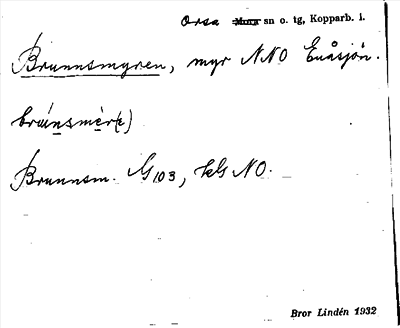 Orsa Mora sn o. tg, Kopparb. l.
Brunnsmyren, myr NNO Enåsjön.
Brunnsm. G103, kG NO.
Bror Lindén 1932